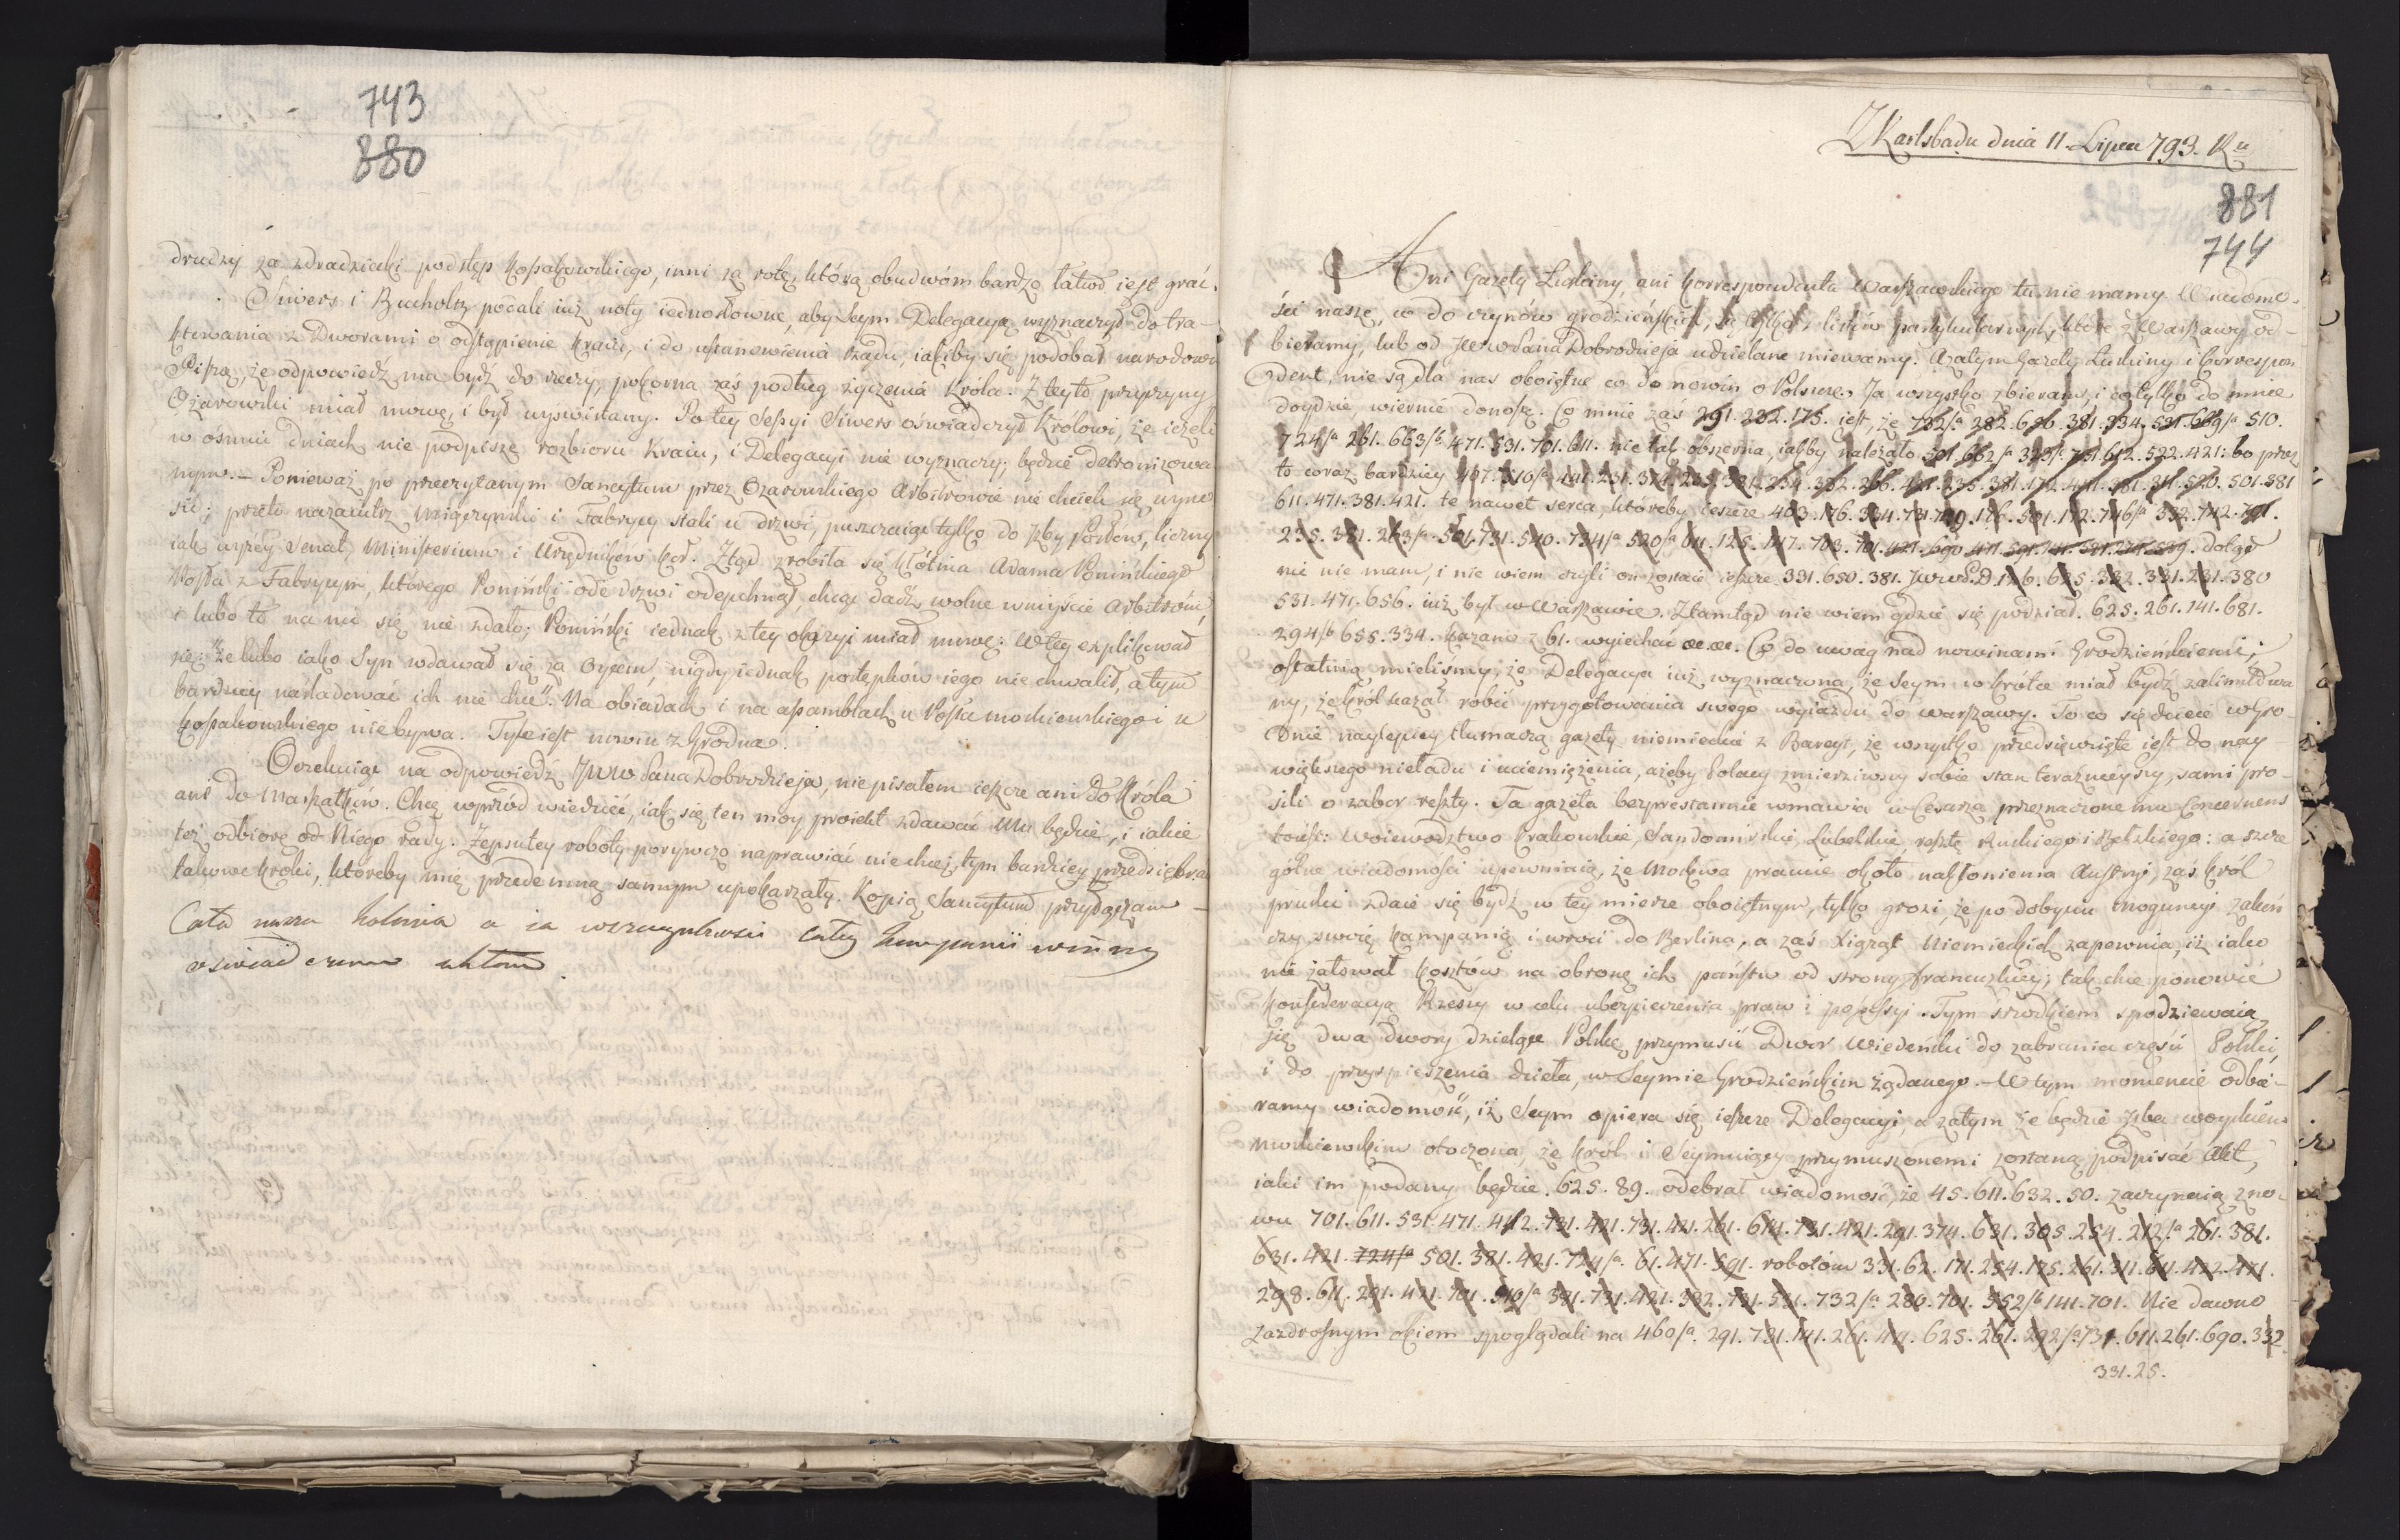 743
880
drudzy za zdradziecki podstęp Kossakowskiego, inni za rolę, którą obudwóm bardzo łatwo iest grać.
Siwers i Bucholtz podali iuż noty iednosłowne, aby Seym Delegacyą wyznaczył do tra-
ktowania z Dworami o odstąpienie kraiu, i do ustanowienia rządu, iakiby się podobał narodowi
Piszą, że odpowiedź ma bydź do rzeczy, pokorna zaś podług życzenia Króla. Z teyto przyczyny
Ożarowski miał mowę, i był wyświstany. Po tey Sessyi Siwers oświadczył Królowi, że ieżeli
w ośmiu dniach nie podpisze rozbioru Kraiu, i Delegacyi nie wyznaczy, będzie detronizowa-
nym. — Ponieważ po przeczytanym Sancytum przez Ożarowskiego Arbitrowie nie chcieli się wyno-
sić; przeto nazaiutrz Miączyński i Fabrycy stali u drzwi, puszczaiąc tylko do Izby Posłów, liczny
iak wyżey Senat, Ministerium i Urzędników Kor. Ztąd zrobiła się kłótnia Adama Ponińskiego
Posła z Fabrycym, którego Poniński ode drzwi odepchnął, chcąc dadź wolne wniyście Arbitróm,
i lubo to na nic się nie zdało; Poniński iednak z tey okazyi miał mowę: W tey explikował
się: "że lubo iako Syn wdawał się za Oycem, nigdy iednak postępków iego nie chwalił, a tym
bardziey naśladować ich nie chce". Na obiadach i na assamblach u Posła moskiewskiego i u
Kossakowskiego nie bywa. Tyle iest nowin z Grodna.
Oczekuiąc na odpowiedź JWW Pana Dobrodzieja, nie pisałem ieszcze ani do Króla
ani do Marszałków. Chcę wprzód wiedzieć, iak się ten moy proiekt zdawać Mu będzie, i iakie
też odbiorę od Niego rady. Zepsutey roboty porywczo naprawiać nie chcę, tym bardziey przedsiębra
takowe kroki, któreby mię przedemną samym upokarzały. Kopią Sancytum przyłączam —
Cała nasza kolonia a ia wszczegulnosci całey kompanii winny
oswiadczam ukłon.
Z Karlsbadu dnia 11. Lipca 793. Ru
881
744
Ani Gazety Luskiny, ani korrespondenta Warszawskiego tu nie mamy. Wiadomo-
ści nasze, co do czynów grodzieńskich, są tylko z listów partykularnych, które z Warszawy od-
bieramy, lub od JWW Pana Dobrodzieja udzielane miewamy. Zatym Gazety Luskiny i Correspon-
dent, nie są dla nas oboiętne co do nowin o Polszcze. Ja wszystko zbieram, i co tylko do mnie
doydzie wiernie donoszę. Co mnie zaś 291. 282. 175. iest, że 782/a 282. 650. 381. 334. 531. 669/a 510.
724/a 261. 663/b 471. 531. 701. 611. nie tak obszerna, iakby należało 501. 662/a 323/b 751. 612. 522. 421: bo przez
to coraz bardziey
611. 471. 381. 421. te nawet serca, któreby ieszcze 403. 176. 334. 731. 749. 176. 501. 172. 746/a 332. 742. 791.
235. 381. 263/a 501. 731. 540. 734/a 520/a 611. 125. 147. 703. 701. 421. 690. dotąd
nic nie mam, i nie wiem czyli on zostaie ieszcze 331. 650. 381. JWWP.D. 126. 625. 332. 331. 231. 380
531. 471. 656. iuż był w Warszawie. Ztamtąd nie wiem gdzie się podział. 625. 261. 141. 681.
294/b 655. 334. kazano z 61. wyiechać &c. &c. Co do uwag nad nowinami Grodzieńskiemi;
ostatnią mieliśmy, że Delegacya iuż wyznaczona, że Seym w krótce miał bydź zalimitowa-
ny, że Król kazał robić przygotowania swego wyiazdu do Warszawy. To co się dzieie w Gro-
dnie naylepiey tłumaczą gazety niemieckie z Bareyt, że wszystko przedsięwzięte iest do nay
większego nieładu i uciemiężenia, ażeby Polacy zmierziwszy sobie stan teraźnieyszy, sami pro-
sili o zabor reszty. Ta gazeta bezprzestannie wmawia w Cesarza przeznaczone mu Concernens
toiest: Woiewodztwo Krakowskie, Sandomirskie, Lubelskie, resztę Ruskiego i Bełzkiego: a szcze
gólne wiadomości upewniaią, że Moskwa pracuie około nakłonienia Austryi, zaś król
pruski zdaie się bydź w tey mierze oboiętnym, tylko grozi, że po dobyciu Moguncyi zakoń
czy swoię kampanią i wróci do Berlina, a zaś Xiążąt Niemieckich zapewnia, iż iako
nie żałował kosztów na obronę ich państw od strony francuzkiey; tak chce ponowić
konfederacyą Rzeszy w celu ubezpieczenia praw i possessyi. Tym srzodkiem spodziewaią
się dwa dwory dzielące Polskę przymusić Dwor Wiedeński do zabrania części Polski,
i do przyspieszenia dzieła, w Seymie Grodzieńskim żądanego. — W tym momencie odbie-
ramy wiadomość, iż Seym opiera się ieszcze Delegacyi, a zatym że będzie Izba woyskiem
moskiewskim otoczona, że król i Seymuiący przymuszonemi zostaną podpisać Akt,
iaki im podany będzie. 625. 89. odebrał wiadomość, że 45. 611. 632. 50. zaczynaią zno-
wu 701. 611. 531. 471. 442. 731. 421. 731. 421. 261. 614. 731. 421. 291. 374. 631. 305. 254. 212/a 261. 381.
631. 421. 724/a 501. 381. 421. 724/a. 61. 471. 591. robotóm 331. 62. 171. 254. 175. 261. 311. 611. 422. 471.
298. 611. 291. 421. 701. 510/a 381. 731. 421. 382. 731. 531. 732/a 280. 701. 552/b 141. 701. Nie dawno
zazdrosnym okiem spoglądali na 460/a. 291. 731. 141. 261. 421. 625. 261. 292/a 731. 611. 261. 690. 332
331. 25.